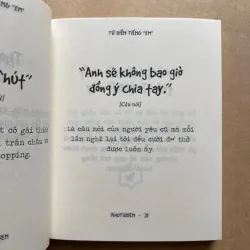 TỪ ĐIỂN TIẾNG "EM"
"Anh sẽ không bao giờ
đồng ý chia tay."
[Câu nói]
là câu nói của người yêu cũ mà mỗi
lần nghĩ lại tôi đều cười
được luôn ấy.
"hút"
t cô gái thôi
trân châu v
opping.